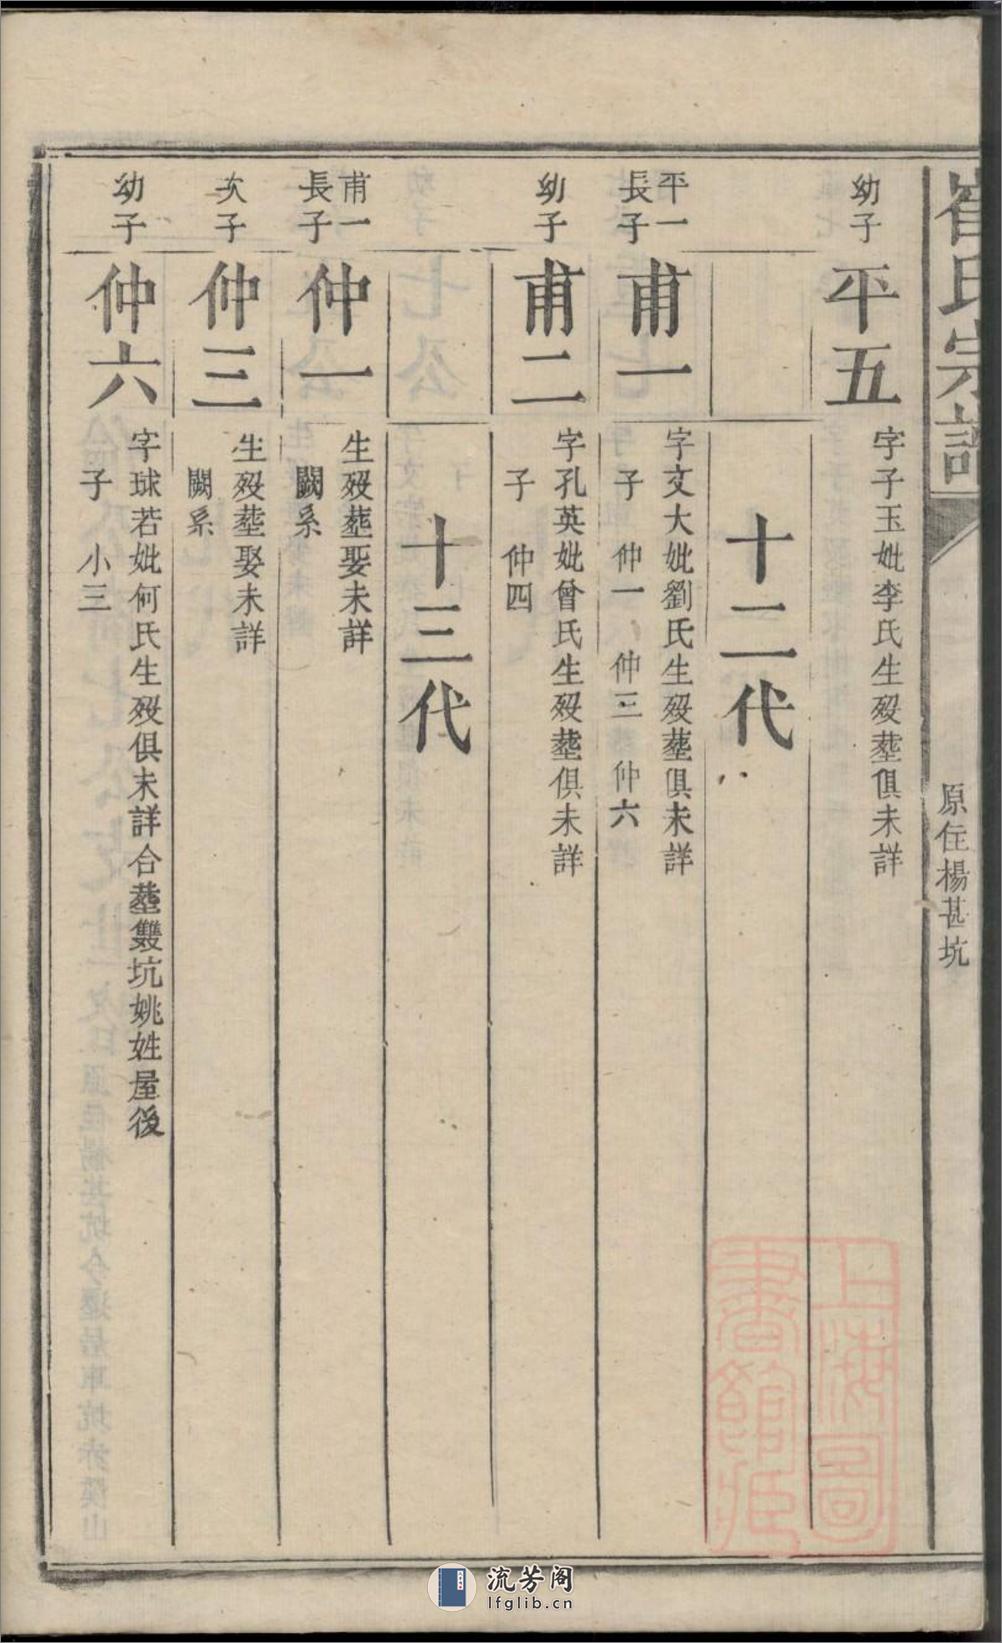 崔氏宗譜
原住楊甚坑
幼子
平五
字子玉妣李氏生歿塟俱未詳
十二代
平一
長子
甫一
字文大妣劉氏生歿塟俱未詳
子 仲一 仲三 仲六
幼子
甫二
字孔英妣曾氏生歿塟俱未詳
子 仲四
十三代
甫一
長子
仲一
生歿塟娶未詳
闕系
次子
仲三
生歿塟娶未詳
闕系
幼子
仲六
字球若妣何氏生歿俱未詳合塟雙坑姚姓屋後
子 小三
上海圖
書館藏
流芳阁
lfglib.cn